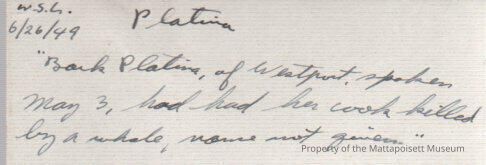 W.S.L.
6/26/49
Platina
"Bark Platina, of Westport, spoken
May 3, had had her cook killed
by a whale, name not given."
Property of the Mattapoisett Museum